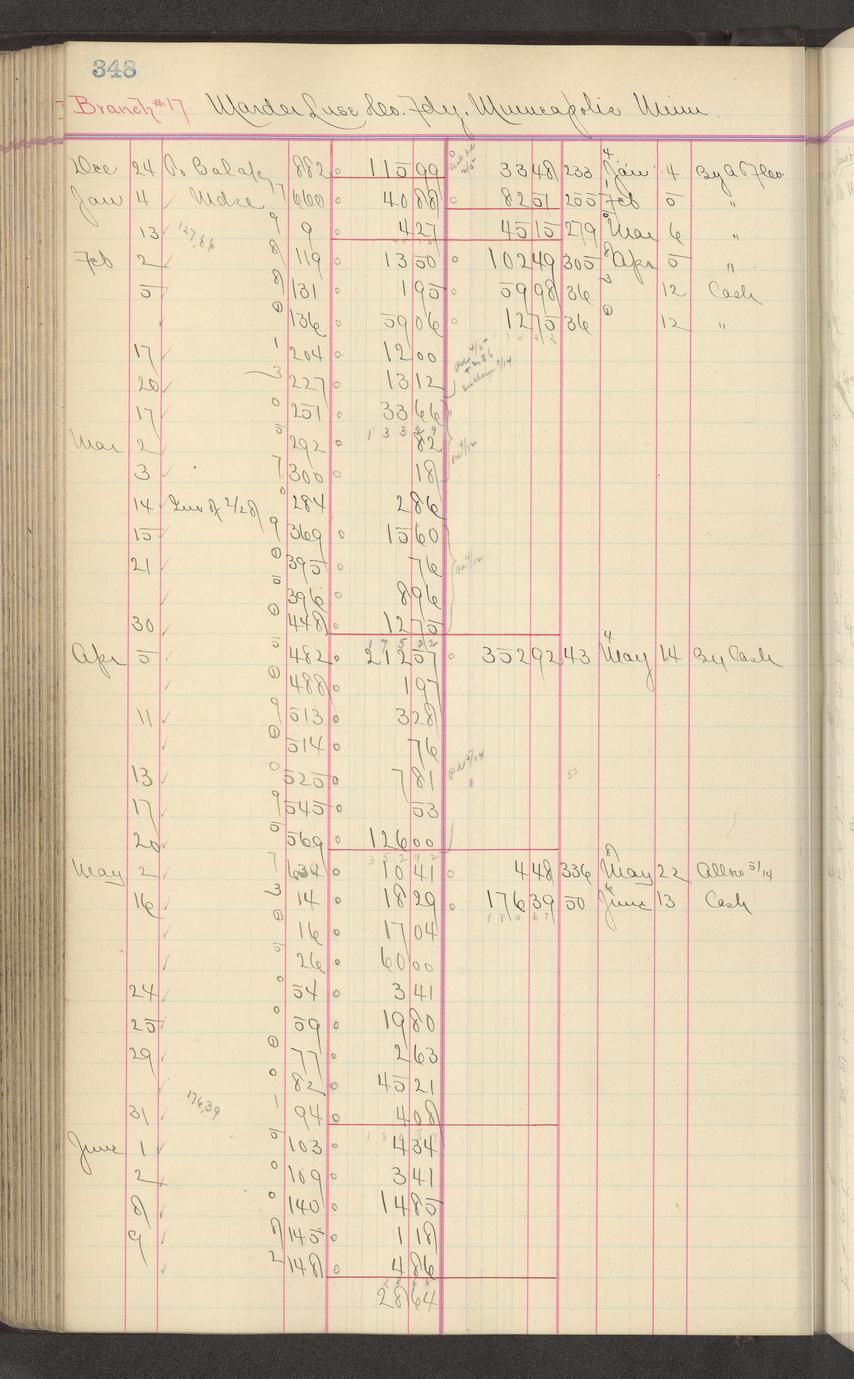 348
Branch #17 Marder Luse &Co. Fdy. Minneapolis Minn
Dec 24 To Bal a/c 882 115 99 33 48 233 4 Jan 4 By
Jan 4 ✓ Mdse 7 660 40 88 82 51 255 1 Feb 5 "
13 137,86 9 9 4 27 45 15 279 0 Mar 6 "
Feb 2 ✓ 8 119 13 50 102 49 305 8 Apr 5 "
5 ✓ 8 131 1 95 59 98 36 3 12 Cash
✓ 1 136 59 06 12 75 36 1 12 "
17 ✓ 1 204 12 00
20 ✓ 3 227 13 12
17 ✓ 0 251 33 66
133 29
Mar 2 ✓ 5 292 82
3 ✓ 7 300 18
14 Inv of 2/28 0 284 2 86
15 ✓ 9 369 15 60
21 ✓ 1 395 76
✓ 5 396 8 96
30 ✓ 1 448 12 75
Apr 5 ✓ 5 482 212 57 352 92 43 4 May 14 By Cash
✓ 1 488 1 97
11 ✓ 9 513 3 28
✓ 1 514 76
13 ✓ 0 525 7 81
17 ✓ 9 545 53
20 ✓ 5 569 126 00
352 92
May 2 ✓ 7 634 10 41 4 48 336 8 May 22 Allow 5/14
16 ✓ 3 14 18 29 176 39 50 4 June 13 Cash
180 87
✓ 1 16 17 04
✓ 5 26 60 00
24 ✓ 0 54 3 41
25 ✓ 0 59 19 80
29 ✓ 1 77 2 63
✓ 0 82 45 21
31 ✓ 176,39 1 94 4 08
June 1 ✓ 5 103 4 34
2 ✓ 0 109 3 41
8 ✓ 0 140 14 85
9 ✓ 8 145 1 18
✓ 2 148 4 86
28 64